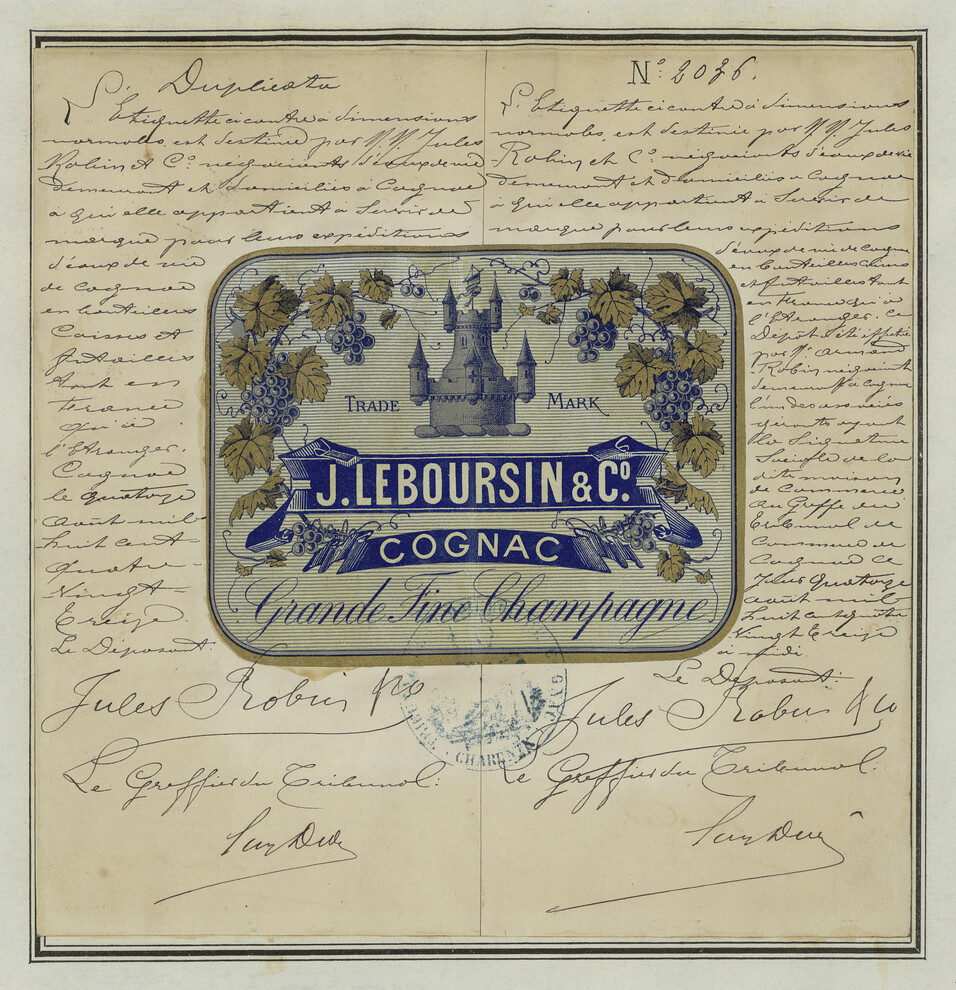 Duplicata
L'Etiquette ci contre à dimensions
normales, est destinée par M.M. Jules
Robin et Co. négociants d'eaux de vie
demeurant et domiciliés à Cognac
à qui elle appartient à Servir de
marque pour leurs expéditions
d'eaux de vie
de Cognac
en bouteilles
Caisses et
futailles
tant en
France
qu'à
l'Etranger.
Cognac
le quatorze
août mil
huit cent
quatre-
Vingt
Treize.
Le Déposant
Jules Robin & Co
Le Greffier du Tribunal.
No. 2036.
L'Etiquette ci contre à dimensions
normales, est destinée par M.M. Jules
Robin et Co. négociants d'eaux de vie
demeurant et domiciliés à Cognac
à qui elle appartient à Servir de
marque pour leurs expéditions
d'eaux de vie de Cognac
en bouteilles Caisses
et futailles tant
en France qu'à
l'Etranger. Ce
Dépôt a été effectué
par Mr. Armand
Robin négociant
demeurant à Cognac
l'un des associés
gérants ayant
la Signature
Sociale de la
dite maison
de Commerce
au Greffe du
Tribunal de
Commerce de
Cognac ce
Jour quatorze
août mil
huit cent quatre
Vingt Treize
à midi.
Le Déposant.
Jules Robin & Co
Le Greffier du Tribunal.
TRADE MARK
J. LEBOURSIN & Co.
COGNAC
Grande Fine Champagne
CHARENTE